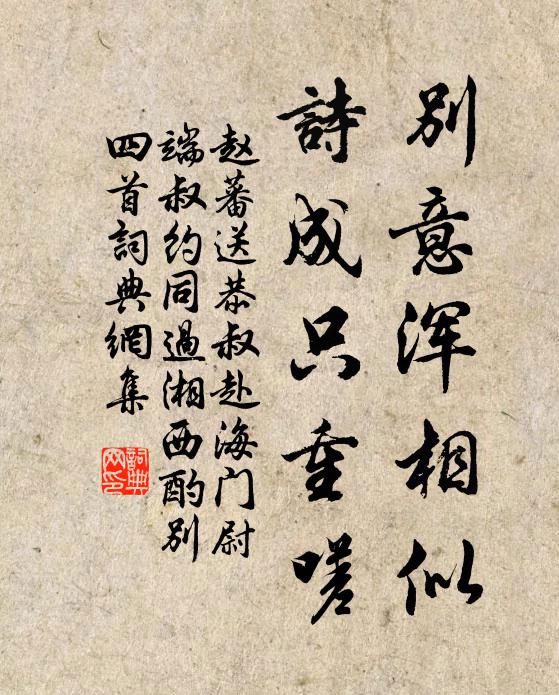 别意浑相似
詩成只重嗟
赵蕃送恭叔赴海门尉
端叔约同過湘西酌别
四首詞典網集
詞典
网印